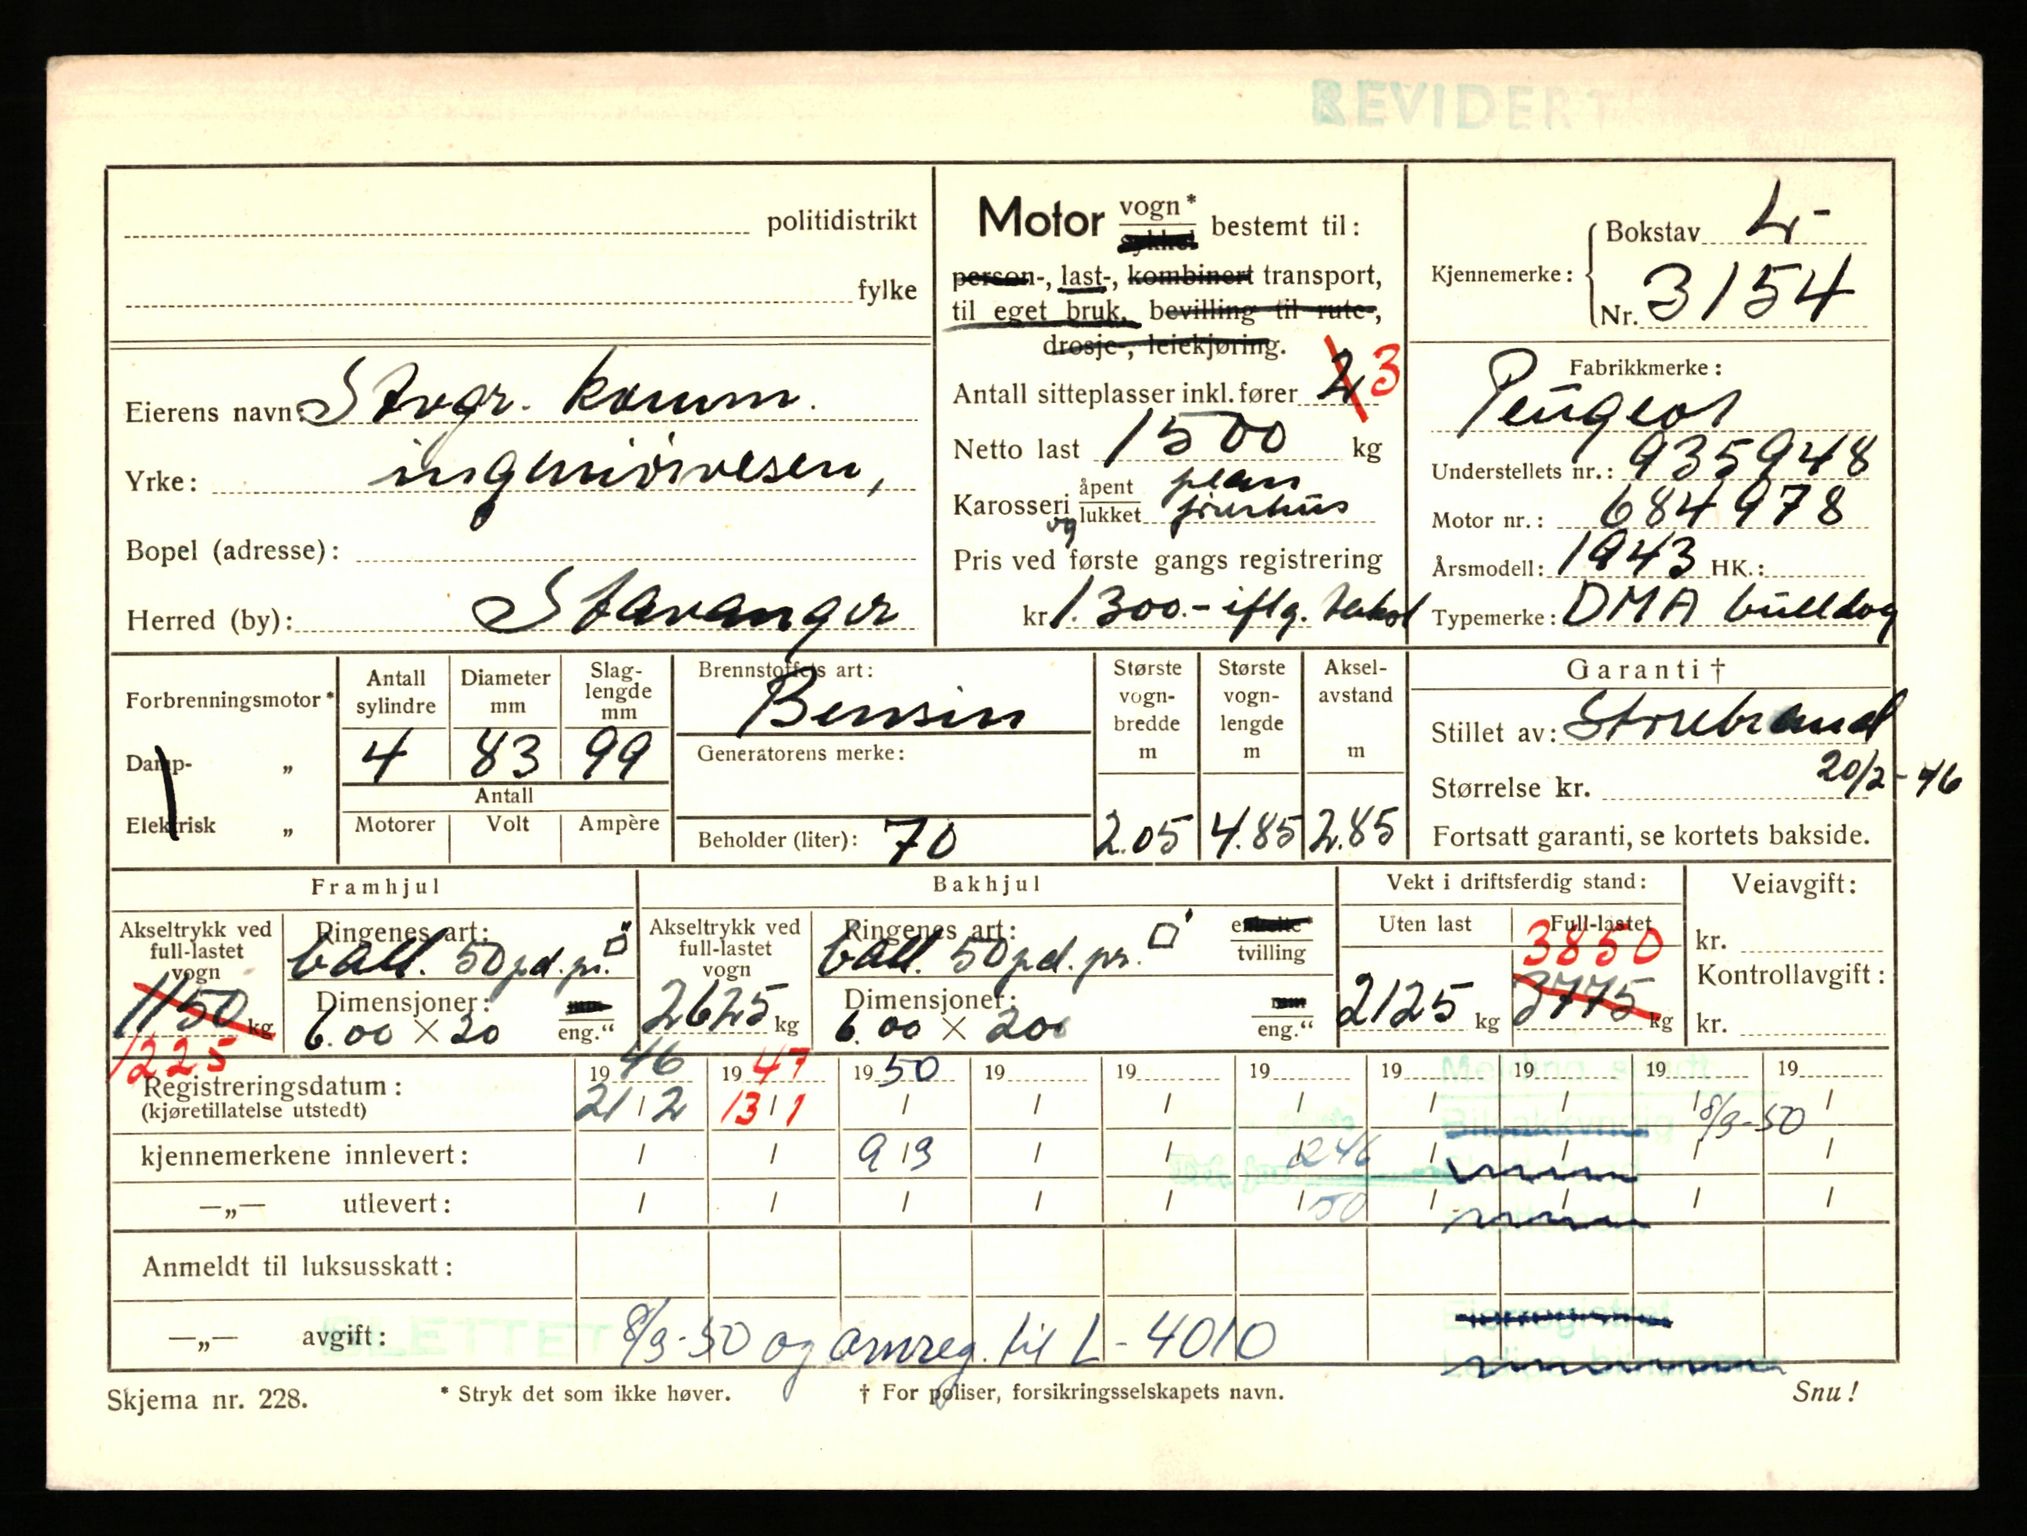 REVIDERT
politidistrikt
fylke
Eierens navn: Stvgr. komm.
Yrke: ingeniörvesen,
Bopel (adresse):
Herred (by): Stavanger
Motor vogn* sykkel bestemt til:
person-, last-, kombinert transport,
til eget bruk, bevilling til rute-,
drosje-, leiekjøring.
Antall sitteplasser inkl. fører 2 3
Netto last 1500 kg
Karosseri åpent og lukket plan förerhus
Pris ved første gangs registrering
kr 1.300.- iflg. takst
Kjennemerke: Bokstav L-
Nr. 3154
Fabrikkmerke:
Peugeot
Understellets nr.: 935948
Motor nr.: 684978
Årsmodell: 1943 HK.:
Typemerke: DMA bulldog
Forbrenningsmotor*
Damp- „
Elektrisk „
Antall sylindre 4
Diameter mm 83
Slag-lengde mm 99
Antall
Motorer Volt Ampère
Brennstoffets art:
Bensin
Generatorens merke:
Beholder (liter): 70
Største vogn-bredde m 2.05
Største vogn-lengde m 4.85
Aksel-avstand m 2.85
Garanti †
Stillet av: Storebrand
20/2-46
Størrelse kr.
Fortsatt garanti, se kortets bakside.
Framhjul
Akseltrykk ved full-lastet vogn
1150 kg
1225
Ringenes art:
ball. 50 pd. pr. □"
Dimensjoner: mm
6.00 × 20 eng.“
Bakhjul
Akseltrykk ved full-lastet vogn
2625 kg
Ringenes art: enkelte*
ball. 50 pd. pr. □' tvilling
Dimensjoner: mm
6.00 × 20 eng.“
Vekt i driftsferdig stand:
Uten last Full-lastet
3850
2125 kg 3775 kg
Veiavgift:
kr.
Kontrollavgift:
kr.
19 46 19 47 19 50 19 19 19 19 19 19 19
Registreringsdatum:
(kjøretillatelse utstedt) 21/2 13/1 / / / / / / / /
8/3-50
kjennemerkene innlevert: / / 9/3 / / / / / / /
246
—„— utlevert: / / / / / / / / / /
50
Anmeldt til luksusskatt:
—„— avgift: 8/3-50 og omreg. til L-4010
SLETTET
Skjema nr. 228.
* Stryk det som ikke høver.
† For poliser, forsikringsselskapets navn.
Snu!